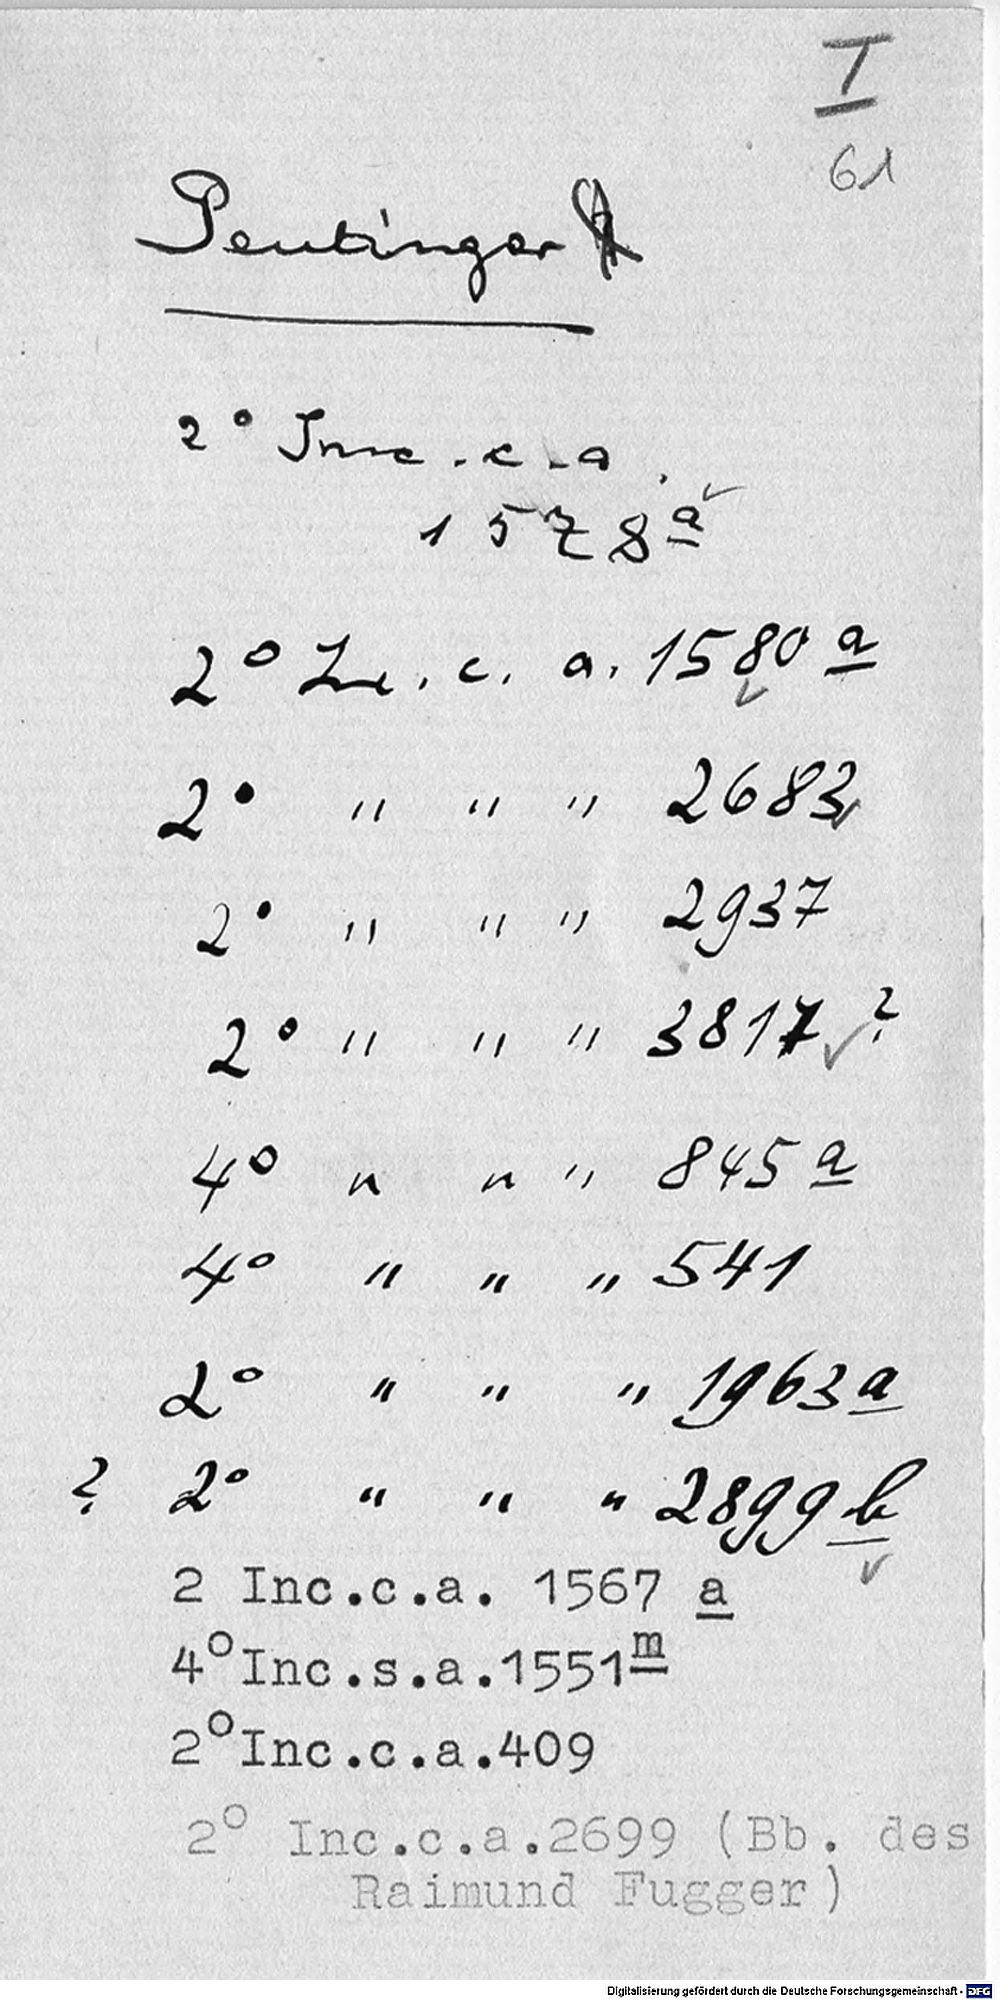 I
61
Peutinger
2° Inc. c. a.
1578 a
2° Inc. c. a. 1580 a
2° " " " 2683
2° " " " 2937
2° " " " 3817 ?
4° " " " 845 a
4° " " " 541
2° " " " 1963 a
? 2° " " " 2899 b
2 Inc.c.a. 1567 a
4° Inc.s.a.1551 m
2° Inc.c.a.409
2° Inc.c.a.2699 (Bb. des
Raimund Fugger)
Digitalisierung gefördert durch die Deutsche Forschungsgemeinschaft - DFG